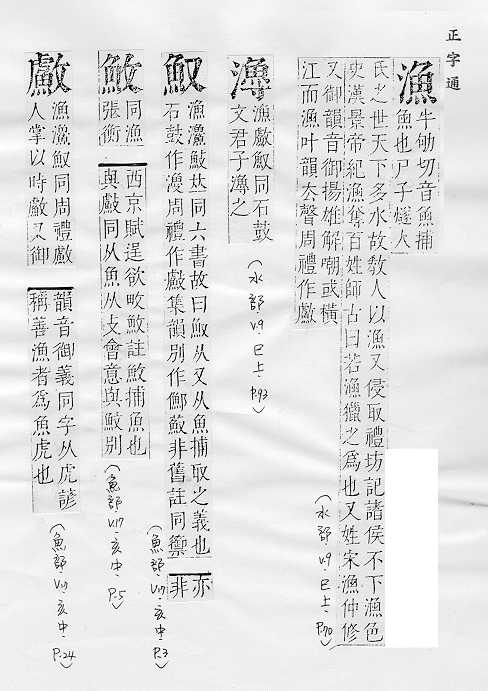 正字通
漁
牛劬切音魚捕
魚也尸子燧人
氏之世天下多水故教人以漁又侵取禮坊記諸侯不下漁色
史漢景帝紀漁奪百姓師古曰若漁獵之爲也又姓宋漁仲修
又御韻音御揚雄解嘲或橫
江而漁叶韻去聲周禮作䱷
(水部 V.9 巳上 P.70)
漁䱷䰻同石鼓
文君子漁之
(水部 V.9 巳上 P.93)
䰻
漁䰻𠀤同六書故曰䰻从又从魚捕取之義也亦
石鼓作周禮作䱷集韻別作非舊註同禦非
(魚部 V.17 亥中 P.3)
𩵎
同漁
張衡
西京賦逞欲畋𩵎註𩵎捕魚也
與䱷同从魚从攴會意與鮫別
(魚部 V.17 亥中 P.5)
䱷
漁䰻同周禮䱷
人掌以時䱷又御
韻音御義同字从虎諺
稱善漁者爲魚虎也
(魚部 V.17 亥中 P.24)